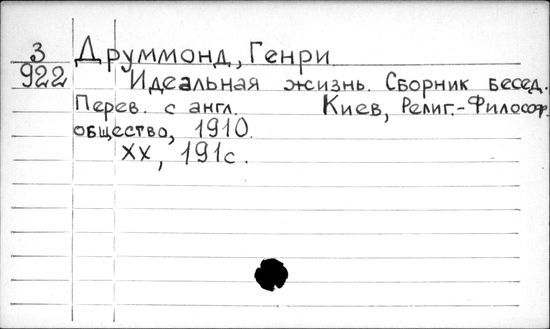 3 Друммонд, Генри
922 Идеальная жизнь. Сборник бесед.
Перев. с англ. Киев, Религ.-Философ.
общество, 1910.
XX, 191с.